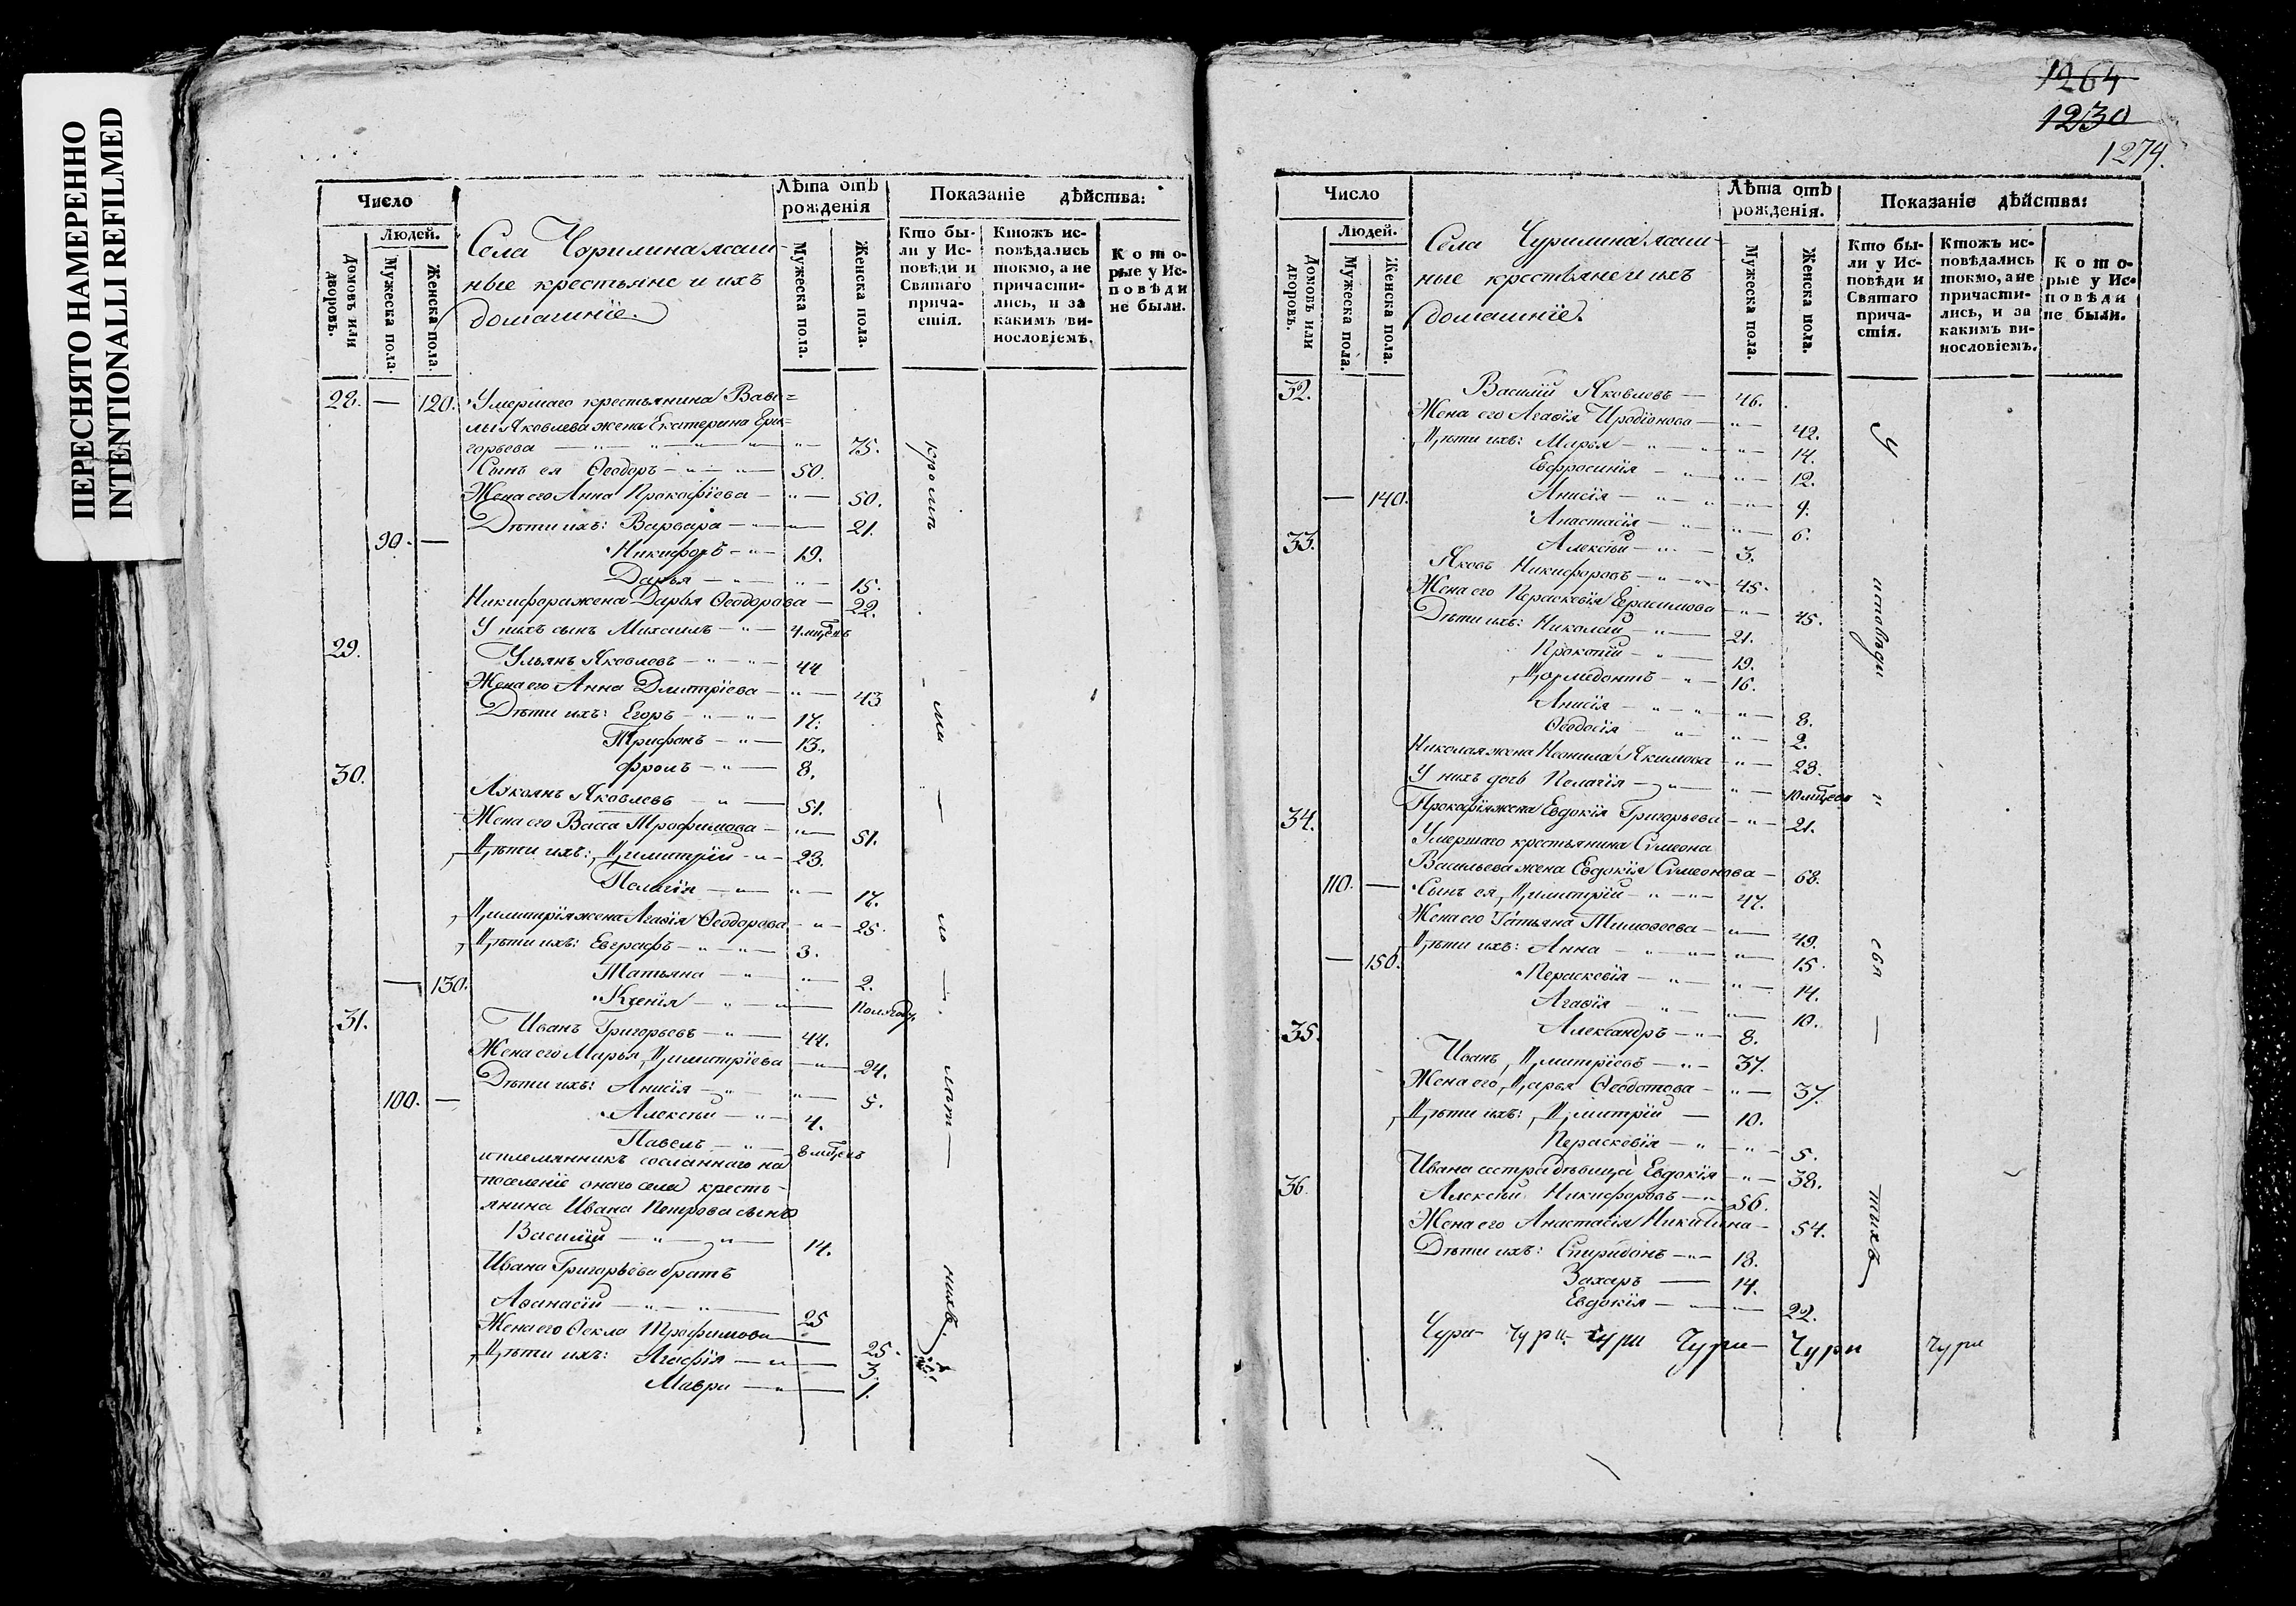 ПЕРЕСНЯТО НАМЕРЕННО
INTENTIONALLI REFILMED
Число
Людей.
Домовъ или дворовъ.
Мужеска пола.
Женска пола.
Села Чурилина ясаш-
ные крестьяне и ихъ
домашніе.
Лѣта отъ рожденія
Мужеска пола.
Женска пола.
Показаніе дѣйства:
Кто были у Исповѣди и Святаго причастія.
Ктожъ исповѣдались токмо, а не причастились, и за какимъ винословіемъ.
Которые у Исповѣди не были.
28. — 120. Умершаго крестьянина Вави-
лы Яковлева жена Екатерина Гри-
горьева — 75.
Сынъ ея Ѳеодоръ — 50.
Жена его Анна Прокофіева — 50.
Дѣти ихъ: Варвара — 21.
90. — Никифоръ — 19.
Дарья — 15.
Никифора жена Дарья Ѳеодорова — 22.
У нихъ сынъ Михаилъ — 4 мцевъ
29. Ульянъ Яковлевъ — 44
Жена его Анна Дмитріева — 43
Дѣти ихъ: Егоръ — 17.
Трифонъ — 13.
Фролъ — 8.
30. Лукоянъ Яковлевъ — 51.
Жена его Васса Трофимова — 51.
Дѣти ихъ: Димитрій — 23.
Пелагія — 17.
Димитрія жена Агафія Ѳеодорова — 25.
Дѣти ихъ: Евграфъ — 3.
Татьяна — 2.
— 130. Ксенія — полгода
31. Иванъ Григорьевъ — 44.
Жена его Марья Димитріева — 24.
Дѣти ихъ: Анисія — 5.
100. — Алексѣй — 4.
Павелъ — 8 мцевъ
и племянникъ сосланнаго на
поселеніе онаго села кресть-
янина Ивана Петрова сынъ
Василій — 14.
Ивана Григорьева братъ
Аѳанасій — 25
Жена его Ѳекла Трофимова — 25.
Дѣти ихъ: Агафія — 3.
Мавра — 1.
кромѣ
мало
лѣт
нихъ.
1264
1230
1274.
Число
Людей.
Домовъ или дворовъ.
Мужеска пола.
Женска пола.
Села Чурилина ясаш-
ные крестьяне и ихъ
домашніе.
Лѣта отъ рожденія.
Мужеска пола.
Женска пола.
Показаніе дѣйства:
Кто были у Исповѣди и Святаго причастія.
Ктожъ исповѣдались токмо, а не причастились, и за какимъ винословіемъ.
Которые у Исповѣди не были.
32. Василій Яковлевъ — 46.
Жена его Агафія Иродіонова — 42.
Дѣти ихъ: Марья — 14.
Евфросинія — 12.
— 140. Анисія — 9.
Анастасія — 6.
Алексѣй — 3.
33. Яковъ Никифоровъ — 45.
Жена его Параскевія Герасимова — 45.
Дѣти ихъ: Николай — 21.
Прокопій — 19.
Дормидонтъ — 16.
Анисія — 8.
Ѳеодосія — 2.
Николая жена Неонила Якимова — 23.
У нихъ дочь Пелагія — 10 мцевъ
Прокофія жена Евдокія Григорьева — 21.
34. Умершаго крестьянина Симеона
Васильева жена Евдокія Симеонова — 68.
110. — Сынъ ея, Димитрій — 47.
Жена его Татьяна Тимоѳеева — 49.
Дѣти ихъ: Анна — 15.
— 150. Параскевія — 14.
Агафія — 10.
Александръ — 8.
35. Иванъ Дмитріевъ — 37.
Жена его, Дарья Ѳеодотова — 37.
Дѣти ихъ: Дмитрій — 10.
Параскевія — 5.
Ивана сестра дѣвица Евдокія — 38.
36. Алексѣй Никифоровъ — 56.
Жена его Анастасія Никитина — 54.
Дѣти ихъ: Спиридонъ — 18.
Захаръ — 14.
Евдокія — 22.
Чури Чури Чури Чури Чури Чури
У
исповѣди
и
свя
тыхъ